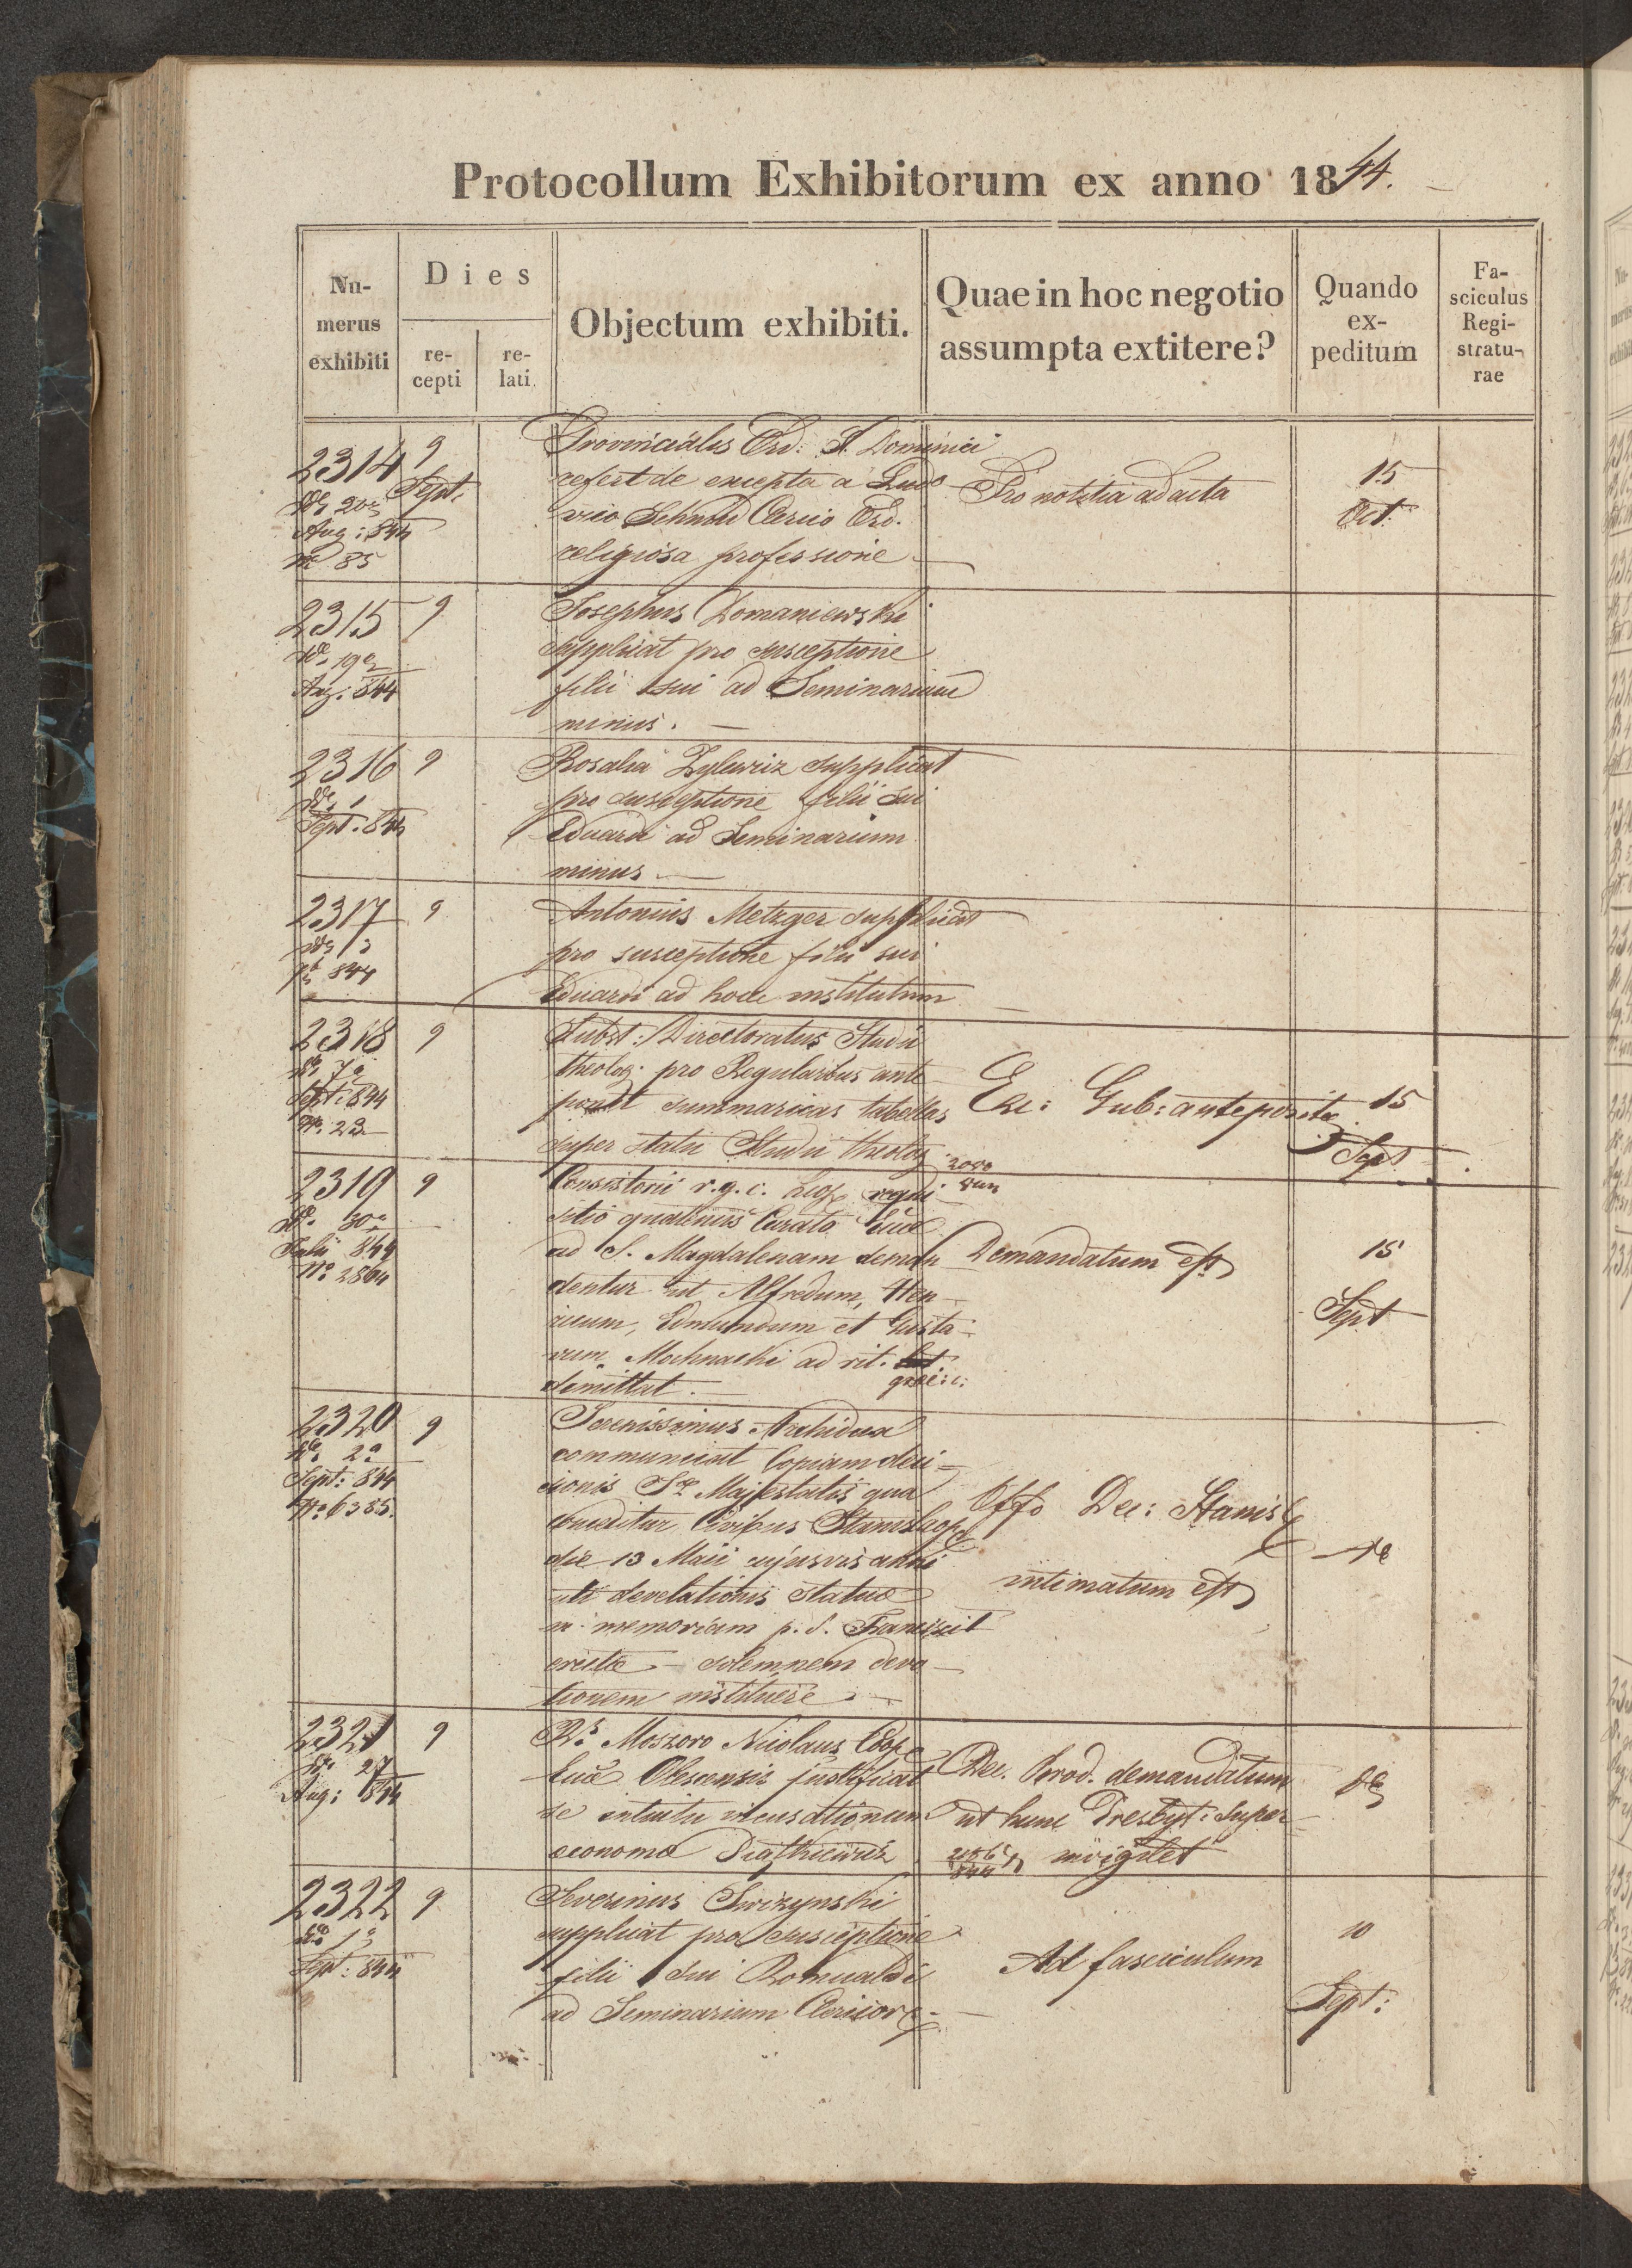 Protocollum Exhibitorum ex anno 1844.
Nu-
merus
exhibiti
Dies
re-
cepti
re-
lati
Objectum exhibiti.
Quae in hoc negotio
assumpta extitere?
Quando
ex-
peditum
Fa-
sciculus
Regi-
stratu-
rae
2314
Aug: 844
No 85
9
Sept:
Provincialis Ord: S. Dominici
refert de excepta a Ludo
vico Schmid Clerico Ord.
religiosa professione
Pro notitia ad acta
15
Oct.
2315
Aug: 844
9
Josephus Domaniewski
supplicat pro susceptione
filii sui ad Seminarium
minus.
2316
Sept: 844
9
Rosalia supplicat
pro susceptione filii sui
Eduardi ad Seminarium
minus
2317
844
9
Antonius Metzger supplicat
pro susceptione filii sui
Eduardi ad hocce institutum
2318
Sept: 844
No 23
9
Subst: Directoratus Studii
theolog: pro Regularibus ante
ponit summaricas tabellas
super statu Studii theolog
Exc: Gub: anteposita
15
Sept
2319
Julii 844
No 2804
9
Consistorii r. g. c. Leop. requi-
sitio quatenus Curato
ad S. Magdalenam deman
dentur ut Alfredum, Hen-
ricum, Edmundum et Gusta-
vum Mochnacki ad rit.
graec: c:
dimittat.
Demandatum est
15
Sept
2320
Sept: 844
No 6385.
9
Serenissimus Archidux
communicat Copiam deci-
sionis Majestatis qua
conceditur Civibus Stanislaop
die 13 Maii cujusvis anni
uti develationis statuae
in memoriam p. d. Francisci I
erectae - solemnem devo-
tionem instituere
Offo Dec: Stanisl
intimatum est
2321
27
Aug: 844
9
Moszoro Nicolaus Coop
justificat
se intuitu incusationum
economo
844
Dec. Brod. demandatum
ut hunc Presbyt: super
invigilet
2322
Sept: 844
9
Severinus
supplicat pro susceptione
filii sui Romualdi
ad Seminarium Clericor
Ad fasciculum
10
Sept: